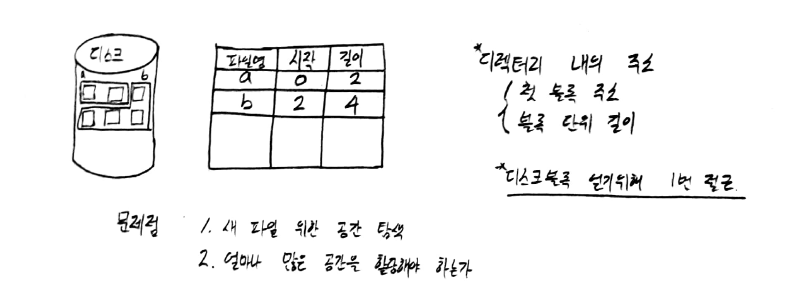 디스크
a b
파일명 시작 길이
a 0 2
b 2 4
*디렉터리 내의 주소
첫 블록 주소
블록 단위 길이
*디스크블록 얻기위해 1번 접근.
문제점 1. 새 파일 위한 공간 탐색
2. 얼마나 많은 공간을 할당해야 하는가